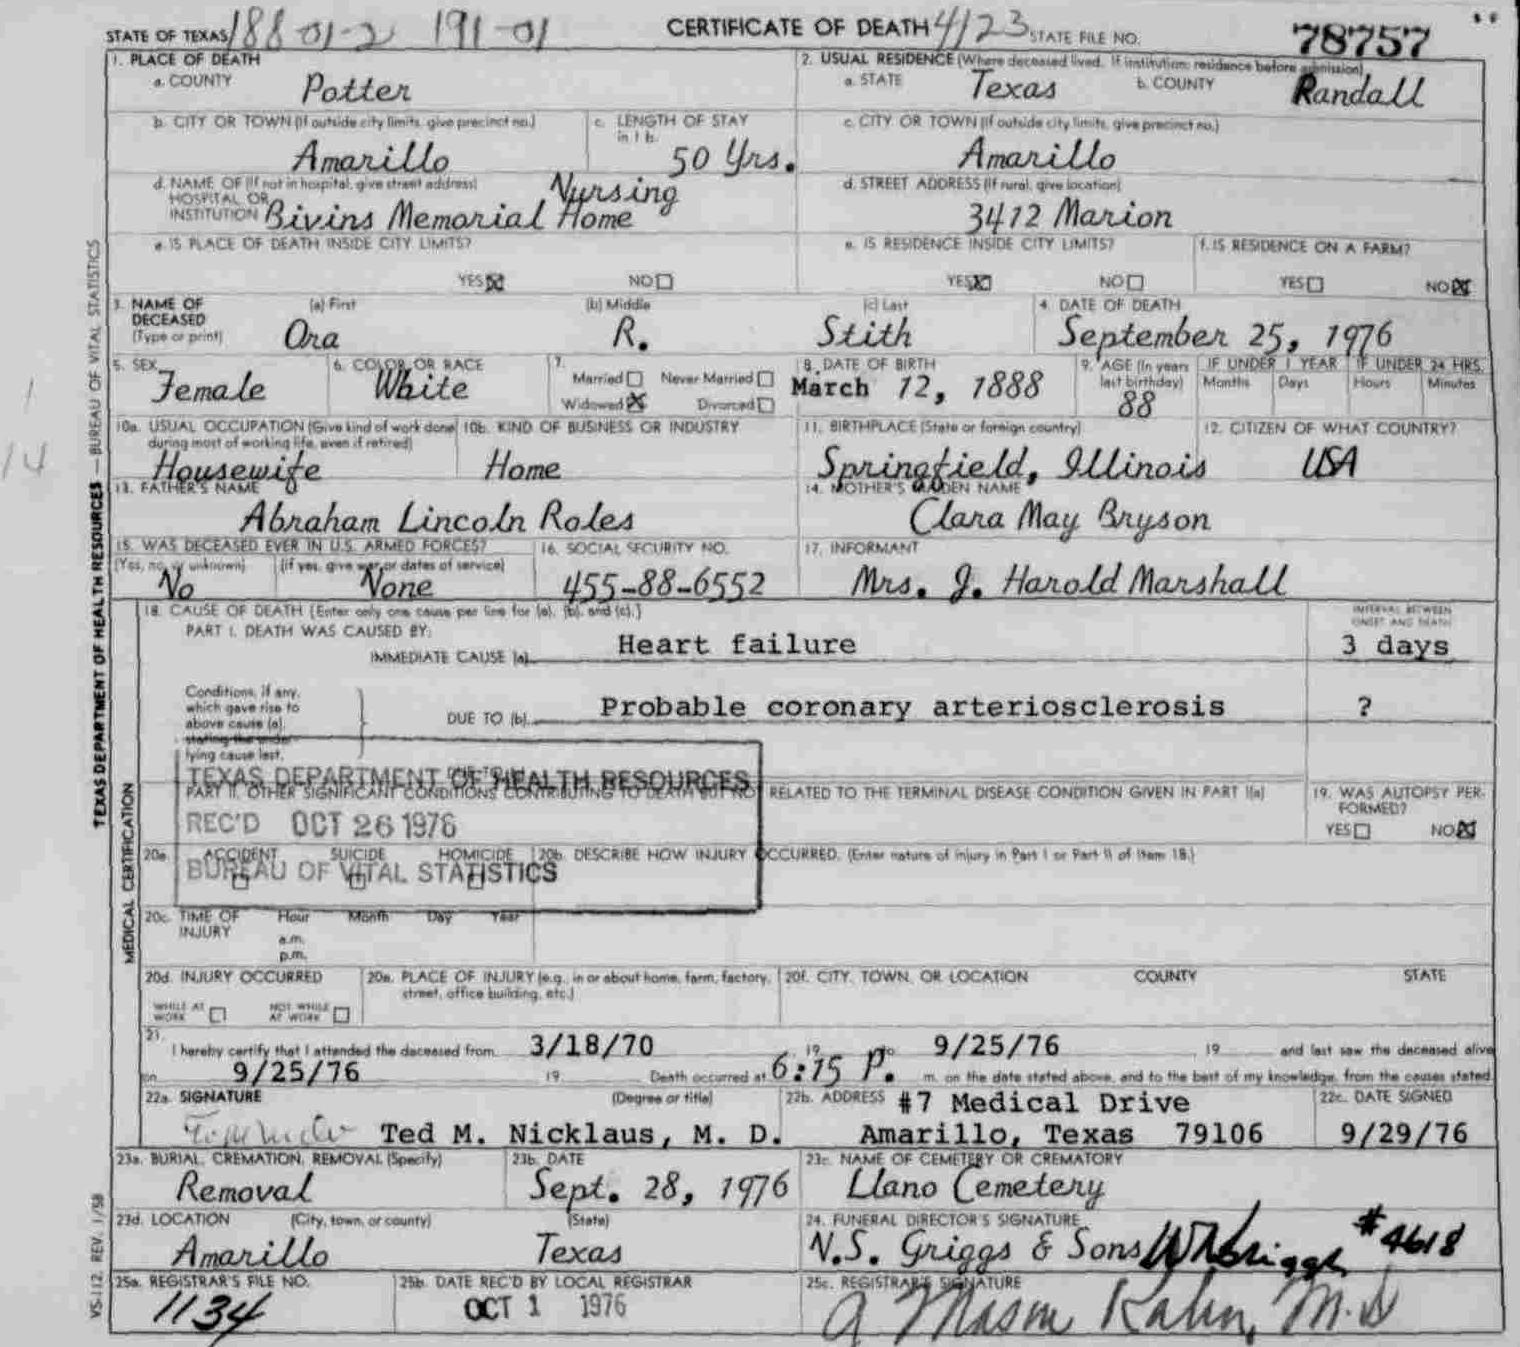 STATE OF TEXAS 188-01-2 191-01 CERTIFICATE OF DEATH 4123 STATE FILE NO. 78757
1. PLACE OF DEATH 2. USUAL RESIDENCE (Where deceased lived. If institution: residence before admission)
a. COUNTY Potter a. STATE Texas b. COUNTY Randall
b. CITY OR TOWN (If outside city limits, give precinct no.) c. LENGTH OF STAY in 1 b. c. CITY OR TOWN (If outside city limits, give precinct no.)
Amarillo 50 Yrs. Amarillo
d. NAME OF (If not in hospital, give street address) HOSPITAL OR INSTITUTION Bivins Memorial Nursing Home d. STREET ADDRESS (If rural, give location)
3412 Marion
e. IS PLACE OF DEATH INSIDE CITY LIMITS? e. IS RESIDENCE INSIDE CITY LIMITS? f. IS RESIDENCE ON A FARM?
YES NO YES NO YES NO
3. NAME OF DECEASED (Type or print) (a) First (b) Middle (c) Last 4. DATE OF DEATH
Ora R. Stith September 25, 1976
5. SEX 6. COLOR OR RACE 7. Married Never Married Widowed Divorced 8. DATE OF BIRTH 9. AGE (In years last birthday) IF UNDER 1 YEAR IF UNDER 24 HRS.
Months Days Hours Minutes
Female White March 12, 1888 88
10a. USUAL OCCUPATION (Give kind of work done during most of working life, even if retired) 10b. KIND OF BUSINESS OR INDUSTRY 11. BIRTHPLACE (State or foreign country) 12. CITIZEN OF WHAT COUNTRY?
Housewife Home Springfield, Illinois USA
13. FATHER'S NAME 14. MOTHER'S MAIDEN NAME
Abraham Lincoln Roles Clara May Bryson
15. WAS DECEASED EVER IN U.S. ARMED FORCES? 16. SOCIAL SECURITY NO. 17. INFORMANT
(Yes, no, or unknown) (If yes, give war or dates of service)
No None 455-88-6552 Mrs. J. Harold Marshall
18. CAUSE OF DEATH (Enter only one cause per line for (a), (b), and (c).) INTERVAL BETWEEN ONSET AND DEATH
PART I. DEATH WAS CAUSED BY:
IMMEDIATE CAUSE (a) Heart failure 3 days
Conditions, if any, which gave rise to above cause (a), stating the underlying cause last.
DUE TO (b) Probable coronary arteriosclerosis ?
TEXAS DEPARTMENT OF HEALTH RESOURCES
PART II. OTHER SIGNIFICANT CONDITIONS CONTRIBUTING TO DEATH BUT NOT RELATED TO THE TERMINAL DISEASE CONDITION GIVEN IN PART I(a) 19. WAS AUTOPSY PERFORMED?
REC'D OCT 26 1976 YES NO
20a. ACCIDENT SUICIDE HOMICIDE 20b. DESCRIBE HOW INJURY OCCURRED. (Enter nature of injury in Part I or Part II of item 18.)
BUREAU OF VITAL STATISTICS
20c. TIME OF INJURY Hour Month Day Year
a.m.
p.m.
20d. INJURY OCCURRED 20e. PLACE OF INJURY (e.g., in or about home, farm, factory, street, office building, etc.) 20f. CITY, TOWN, OR LOCATION COUNTY STATE
WHILE AT WORK NOT WHILE AT WORK
21.
I hereby certify that I attended the deceased from 3/18/70 19 to 9/25/76 19 and last saw the deceased alive
on 9/25/76 19 Death occurred at 6:15 P. m. on the date stated above, and to the best of my knowledge, from the causes stated.
22a. SIGNATURE (Degree or title) 22b. ADDRESS #7 Medical Drive 22c. DATE SIGNED
Ted M. Nicklaus, M. D. Amarillo, Texas 79106 9/29/76
23a. BURIAL, CREMATION, REMOVAL (Specify) 23b. DATE 23c. NAME OF CEMETERY OR CREMATORY
Removal Sept. 28, 1976 Llano Cemetery
23d. LOCATION (City, town, or county) (State) 24. FUNERAL DIRECTOR'S SIGNATURE
Amarillo Texas N.S. Griggs & Sons #4618
25a. REGISTRAR'S FILE NO. 25b. DATE REC'D BY LOCAL REGISTRAR 25c. REGISTRAR'S SIGNATURE
1134 OCT 1 1976 A Mason Kahn, M.D
TEXAS DEPARTMENT OF HEALTH RESOURCES — BUREAU OF VITAL STATISTICS
MEDICAL CERTIFICATION
VS-112 REV. 1/58
1
14